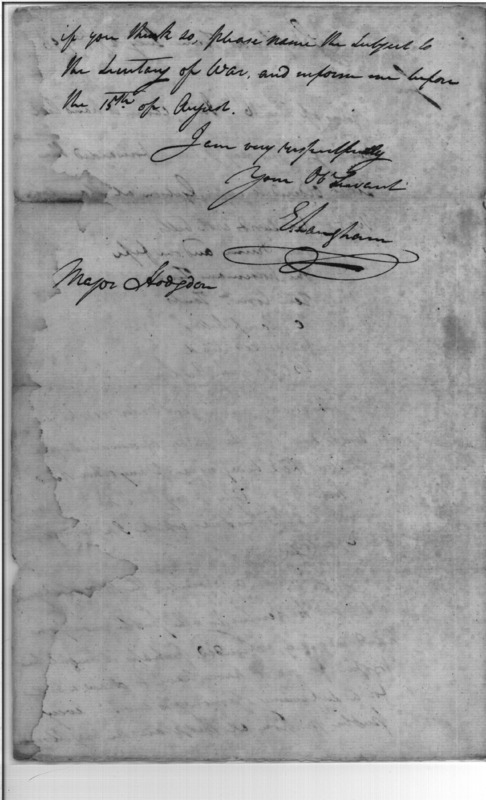 if you think so, please name the Subject to
the Secretary of War, and inform me before
the 15th of August.
I am very respectfully
Your Ob Servant
E. Langham
Major Hodgdon